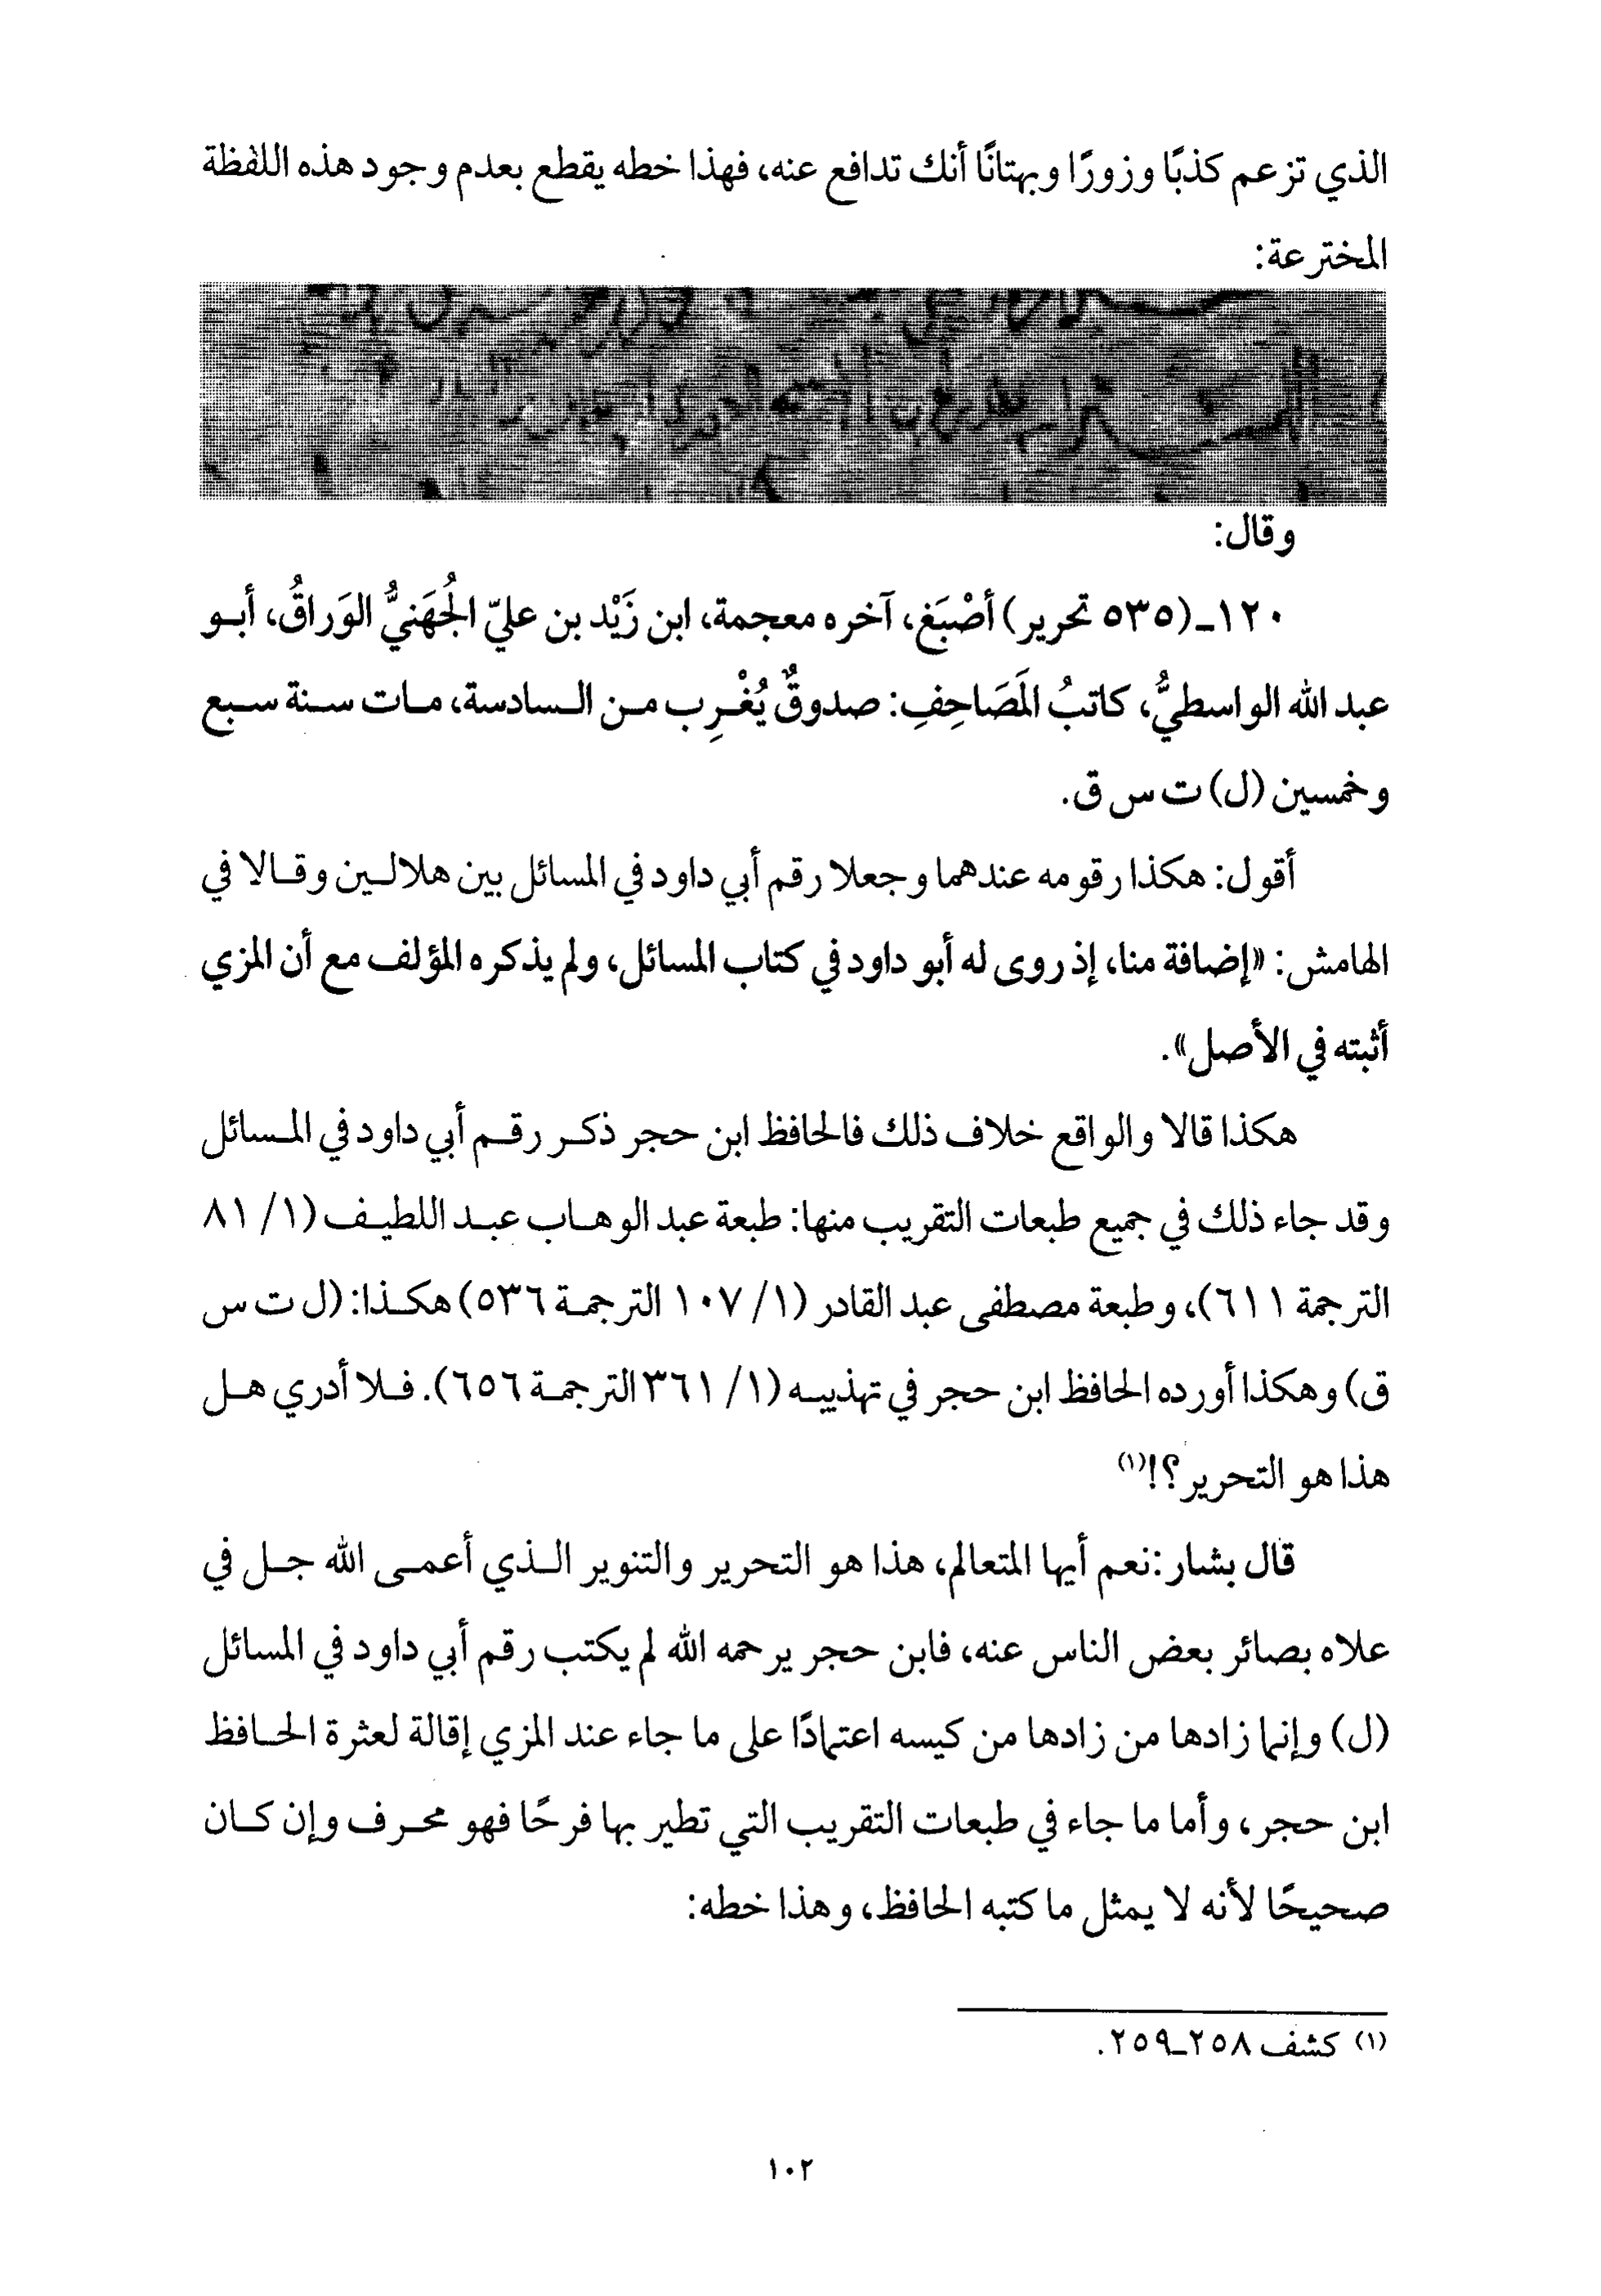 الذي تزعم كذبًا وزورًا وبهتانًا أنك تدافع عنه، فهذا خطه يقطع بعدم وجود هذه اللفظة
المخترعة:
وقال:
١٢٠ـ(٥٣٥ تحرير) أصْبَغ، آخره معجمة، ابن زَيْد بن عليّ الجُهَنيُّ الوَراقُ، أبو
عبد الله الواسطيُّ، كاتبُ المَصَاحِفِ: صدوقٌ يُغْرِب من السادسة، مات سنة سبع
وخمسين (ل) ت س ق.
أقول: هكذا رقومه عندهما وجعلا رقم أبي داود في المسائل بين هلالين وقالا في
الهامش: «إضافة منا، إذ روى له أبو داود في كتاب المسائل، ولم يذكره المؤلف مع أن المزي
أثبته في الأصل».
هكذا قالا والواقع خلاف ذلك فالحافظ ابن حجر ذكر رقم أبي داود في المسائل
وقد جاء ذلك في جميع طبعات التقريب منها: طبعة عبد الوهاب عبد اللطيف (١/ ٨١
الترجمة ٦١١)، وطبعة مصطفى عبد القادر (١/ ١٠٧ الترجمة ٥٣٦) هكذا: (ل ت س
ق) وهكذا أورده الحافظ ابن حجر في تهذيبه (١/ ٣٦١ الترجمة ٦٥٦). فلا أدري هل
هذا هو التحرير؟!(١)
قال بشار: نعم أيها المتعالم، هذا هو التحرير والتنوير الذي أعمى الله جل في
علاه بصائر بعض الناس عنه، فابن حجر يرحمه الله لم يكتب رقم أبي داود في المسائل
(ل) وإنما زادها من زادها من كيسه اعتمادًا على ما جاء عند المزي إقالة لعثرة الحافظ
ابن حجر، وأما ما جاء في طبعات التقريب التي تطير بها فرحًا فهو محرف وإن كان
صحيحًا لأنه لا يمثل ما كتبه الحافظ، وهذا خطه:
(١) كشف ٢٥٨ـ٢٥٩.
١٠٢